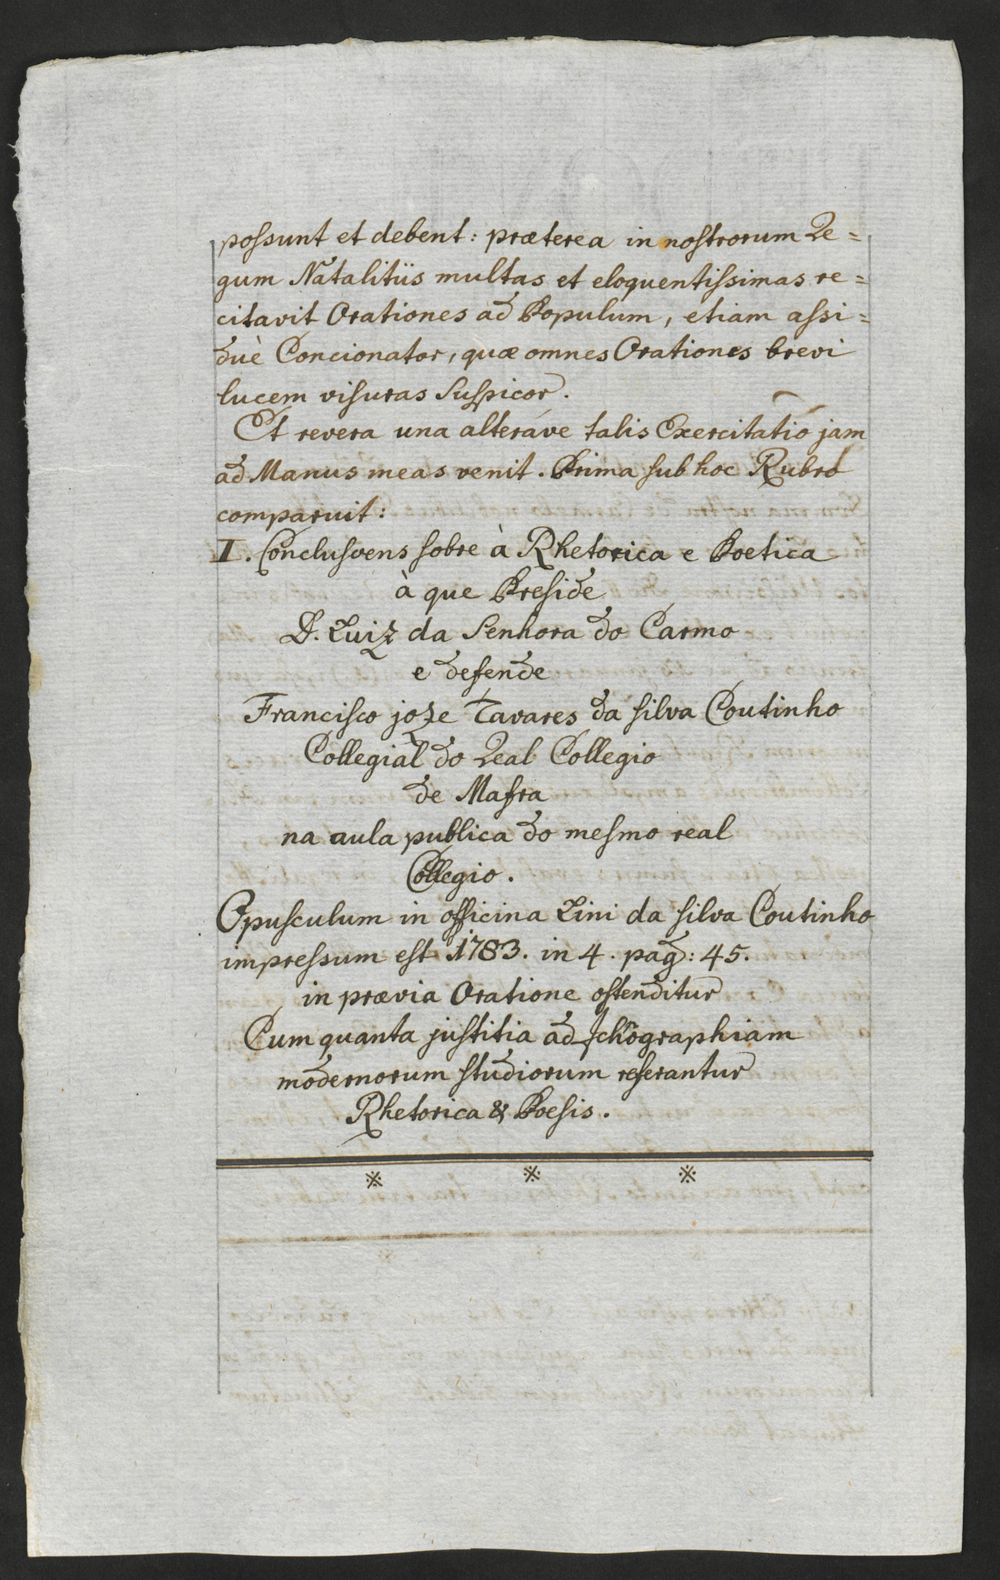 possunt et debent: præterea in nostrorum Re=
gum Natalitiis multas et eloquentissimas re=
citavit Orationes ad Populum, etiam assi=
duè Concionator, quæ omnes Orationes brevi
lucem visuras suspicor.
Et revera una alteráve talis Exercitatio jam
ad Manus meas venit. Prima sub hoc Rubro
comparuit:
I. Conclusoens sobre à Rhetorica e Poetica
à que Preside
D. Luiz da Senhora do Carmo
e defende
Francisco joze Tavares da silva Coutinho
Collegial do Real Collegio
de Mafra
na aula publica do mesmo real
Collegio.
Opusculum in officina Lini da silva Coutinho
impressum est 1783. in 4. pag: 45.
in prævia Oratione ostenditur
Cum quanta justitia ad Ichographiam
modernorum studiorum referantur
Rhetorica & Poesis.